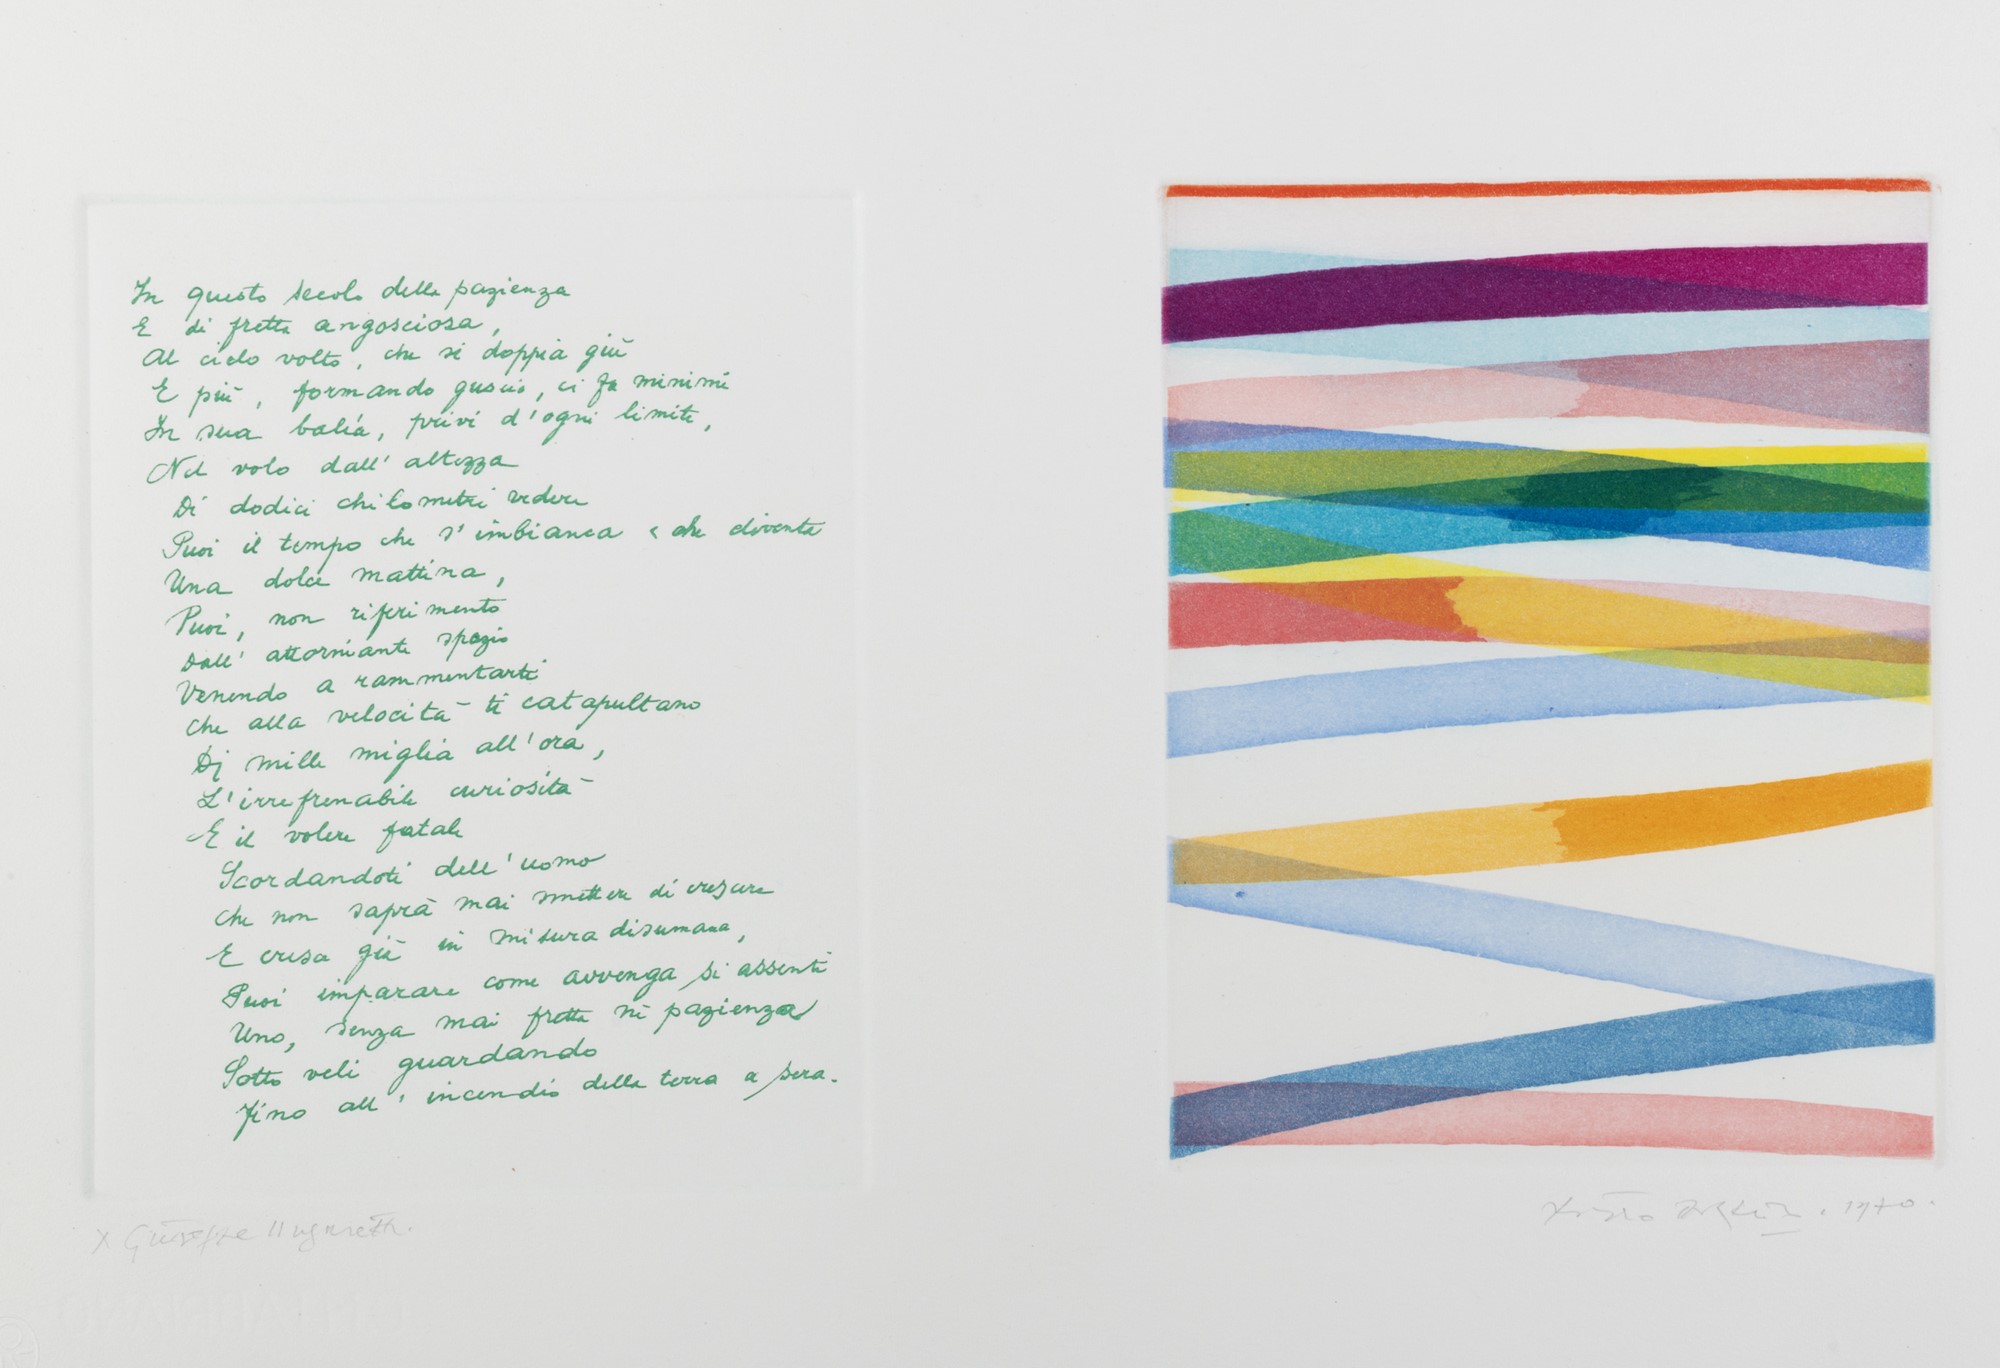 In questo secolo della pazienza
E di fretta angosciosa,
Al cielo volto, che si doppia giù
E più, formando guscio, ci fa minimi
In sua balìa, privi d'ogni limite,
Nel volo dall'altezza
Di dodici chilometri vedere
Puoi il tempo che s'imbianca e che diventa
Una dolce mattina,
Puoi, non riferimento
Dall'attorniante spazio
Venendo a rammentarti
Che alla velocità ti catapultano
Di mille miglia all'ora,
L'irrefrenabile curiosità
E il volere fatale
Scordandoti dell'uomo
Che non saprà mai smettere di crescere
E cresce già in misura disumana,
Puoi imparare come avvenga si assenti
Uno, senza mai fretta nè pazienza
Sotto veli guardando
Fino all'incendio della terra a sera.
X Giuseppe Ungaretti.
Piero Dorazio. 1970.
FABRIANO